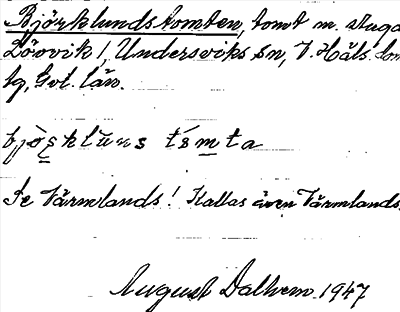 Björklundstomten, tomt m. stuga
Lövvik /, Undersviks sn, V. Häls. dom-
sg, Gvl. län.
Se Värmlands! Kallas även Värmlands.
August Dalhem 1947